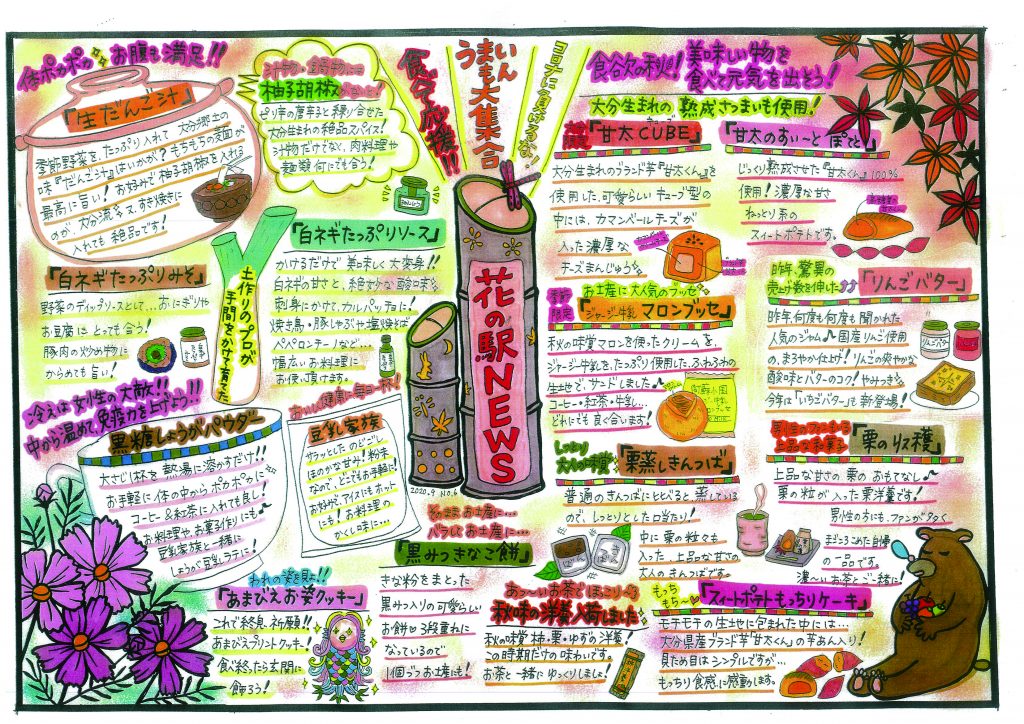 体ポカポカ お腹も満足!!
『生だんご汁』
季節野菜をたっぷり入れて大分郷土の
味『だんご汁』はいかが?もちもちの麺が
最高に旨い!お好みで柚子胡椒を入れる
のが、大分流 又、すき焼きに
入れても絶品です!
柚子胡椒
ピリ辛の唐辛子と練り合せた
大分生まれの絶品スパイス!
汁物だけなく、肉料理や
麺類何にでも合う!
食べて応援!!
うまいもん大集合
コロナに負けるな!
『白ネギたっぷりみそ』
野菜のディップソースとして…おにぎりや
お豆腐にとっても合う!
豚肉の炒め物に
からめても旨い!
土作りのプロが
手間をかけて育てた
『白ネギたっぷりソース』
かけるだけで美味しく大変身!!
白ネギの甘さと、絶妙な酸味
刺身にかけて、カルパッチョに!
焼き鳥・豚しゃぶや塩焼そば
ペペロンチーノなど…
幅広いお料理に
お使い頂けます。
冷えは女性の大敵!!
中から温めて、免疫力を上げよう!!
『黒糖しょうがパウダー』
大さじ1杯を熱湯に溶かすだけ!!
お手軽に体の中からポカポカに
コーヒー&紅茶に入れても良し!
お料理や、お菓子作りにも♪
豆乳家族と一緒に
しょうが豆乳ラテに!
おいしく健康に毎日一杯!
『豆乳家族』
サラッとしたのどごし
ほのかな甘み!粉末
なので、どこでもお手軽に!
お好みで、アイスにもホット
にも!お料理の
かくし味に…
花の駅NEWS
2020.9 No.6
われの姿を見よ!!
『あまびえお姿クッキー』
これで終息祈願!!
あまびえプリントクッキー!
食べ終ったら玄関に
飾ろう!
そのままお土産に…
バラしてお土産に…
『黒みつきなこ餅』
きな粉をまとった
黒みつ入りの可愛らしい
お餅♡3段重ねに
なっているので
1個づつお土産にも!
食欲の秋!美味しい物を
食べて元気を出そう!
大分生まれの熟成さつまいも使用!
『甘太CUBE』
大分生まれのブランド芋『甘太くん』を
使用した、可愛らしいキューブ型の
中には、カマンベールチーズが
入った濃厚な
チーズまんじゅう
『甘太のすいーとぽてと』
じっくり熟成させた『甘太くん』100%
使用!濃厚な甘さ
ねっとり系の
スイートポテトです。
お土産に大人気のブッセ♡
季節限定
『ジャージー牛乳 マロンブッセ』
秋の味覚マロンを使ったクリームを、
ジャージー牛乳を、たっぷり使用した、ふわふわの
生地で、サンドしました♪
コーヒー・紅茶・牛乳…
どれにでも良く合います!
昨年、驚異の
売り数を伸した
『りんごバター』
昨年何度も何度も聞かれた
人気のジャム♪国産りんご使用
の、まろやか仕上げ!りんごの爽やかな
酸味とバターのコク!やみつき♡
今年は『いちごバター』も新登場!
しっとり
大人の味覚
『栗蒸しきんつば』
普通のきんつばにくらべると蒸している
ので、しっとりとした口当たり!
中に栗の粒々も
入った上品な甘さの
大人のきんつばです。
男性のファンもいる
上品な和菓子
『栗の収穫』
上品な甘さの栗のおもてなし♪
栗の粒が入った栗洋羹です!
男性の方にも、ファンが多く
の一品です。
濃〜いお茶とご一緒に!
あっ〜いお茶でほっこり♡
秋味の洋羹入荷しました
秋の味覚 柚・栗・ゆずの洋羹!
この時期だけの味わいです。
お茶と一緒にゆっくりしましょ!
もっちもち〜♡
『スイートポテトもっちりケーキ』
モチモチの生地に包まれた中には…
大分県産ブランド芋“甘太くん”の芋あん入り!
見ため目はシンプルですが…
もっちり食感に感動します。